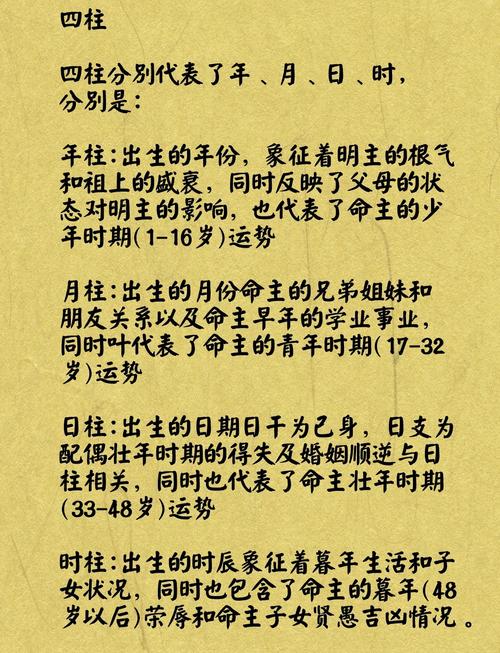 四柱
四柱分别代表了年、月、日、时，
分别是：
年柱：出生的年份，象征着明主的根气
和祖上的盛衰，同时反映了父母的状
态对明主的影响，也代表了命主的少
年时期(1-16岁)运势
月柱：出生的月份命主的兄弟姐妹和
朋友关系以及命主早年的学业事业，
同时叶代表了命主的青年时期(17-32
岁)运势
日柱：出生的日期日干为己身，日支为
配偶壮年时期的得失及婚姻顺逆与日
柱相关，同时也代表了命主壮年时期
(33-48岁)运势
时柱：出生的时辰象征着暮年生活和子
女状况，同时也包含了命主的暮年(48
岁以后)荣辱和命主子女贤愚吉凶情况。